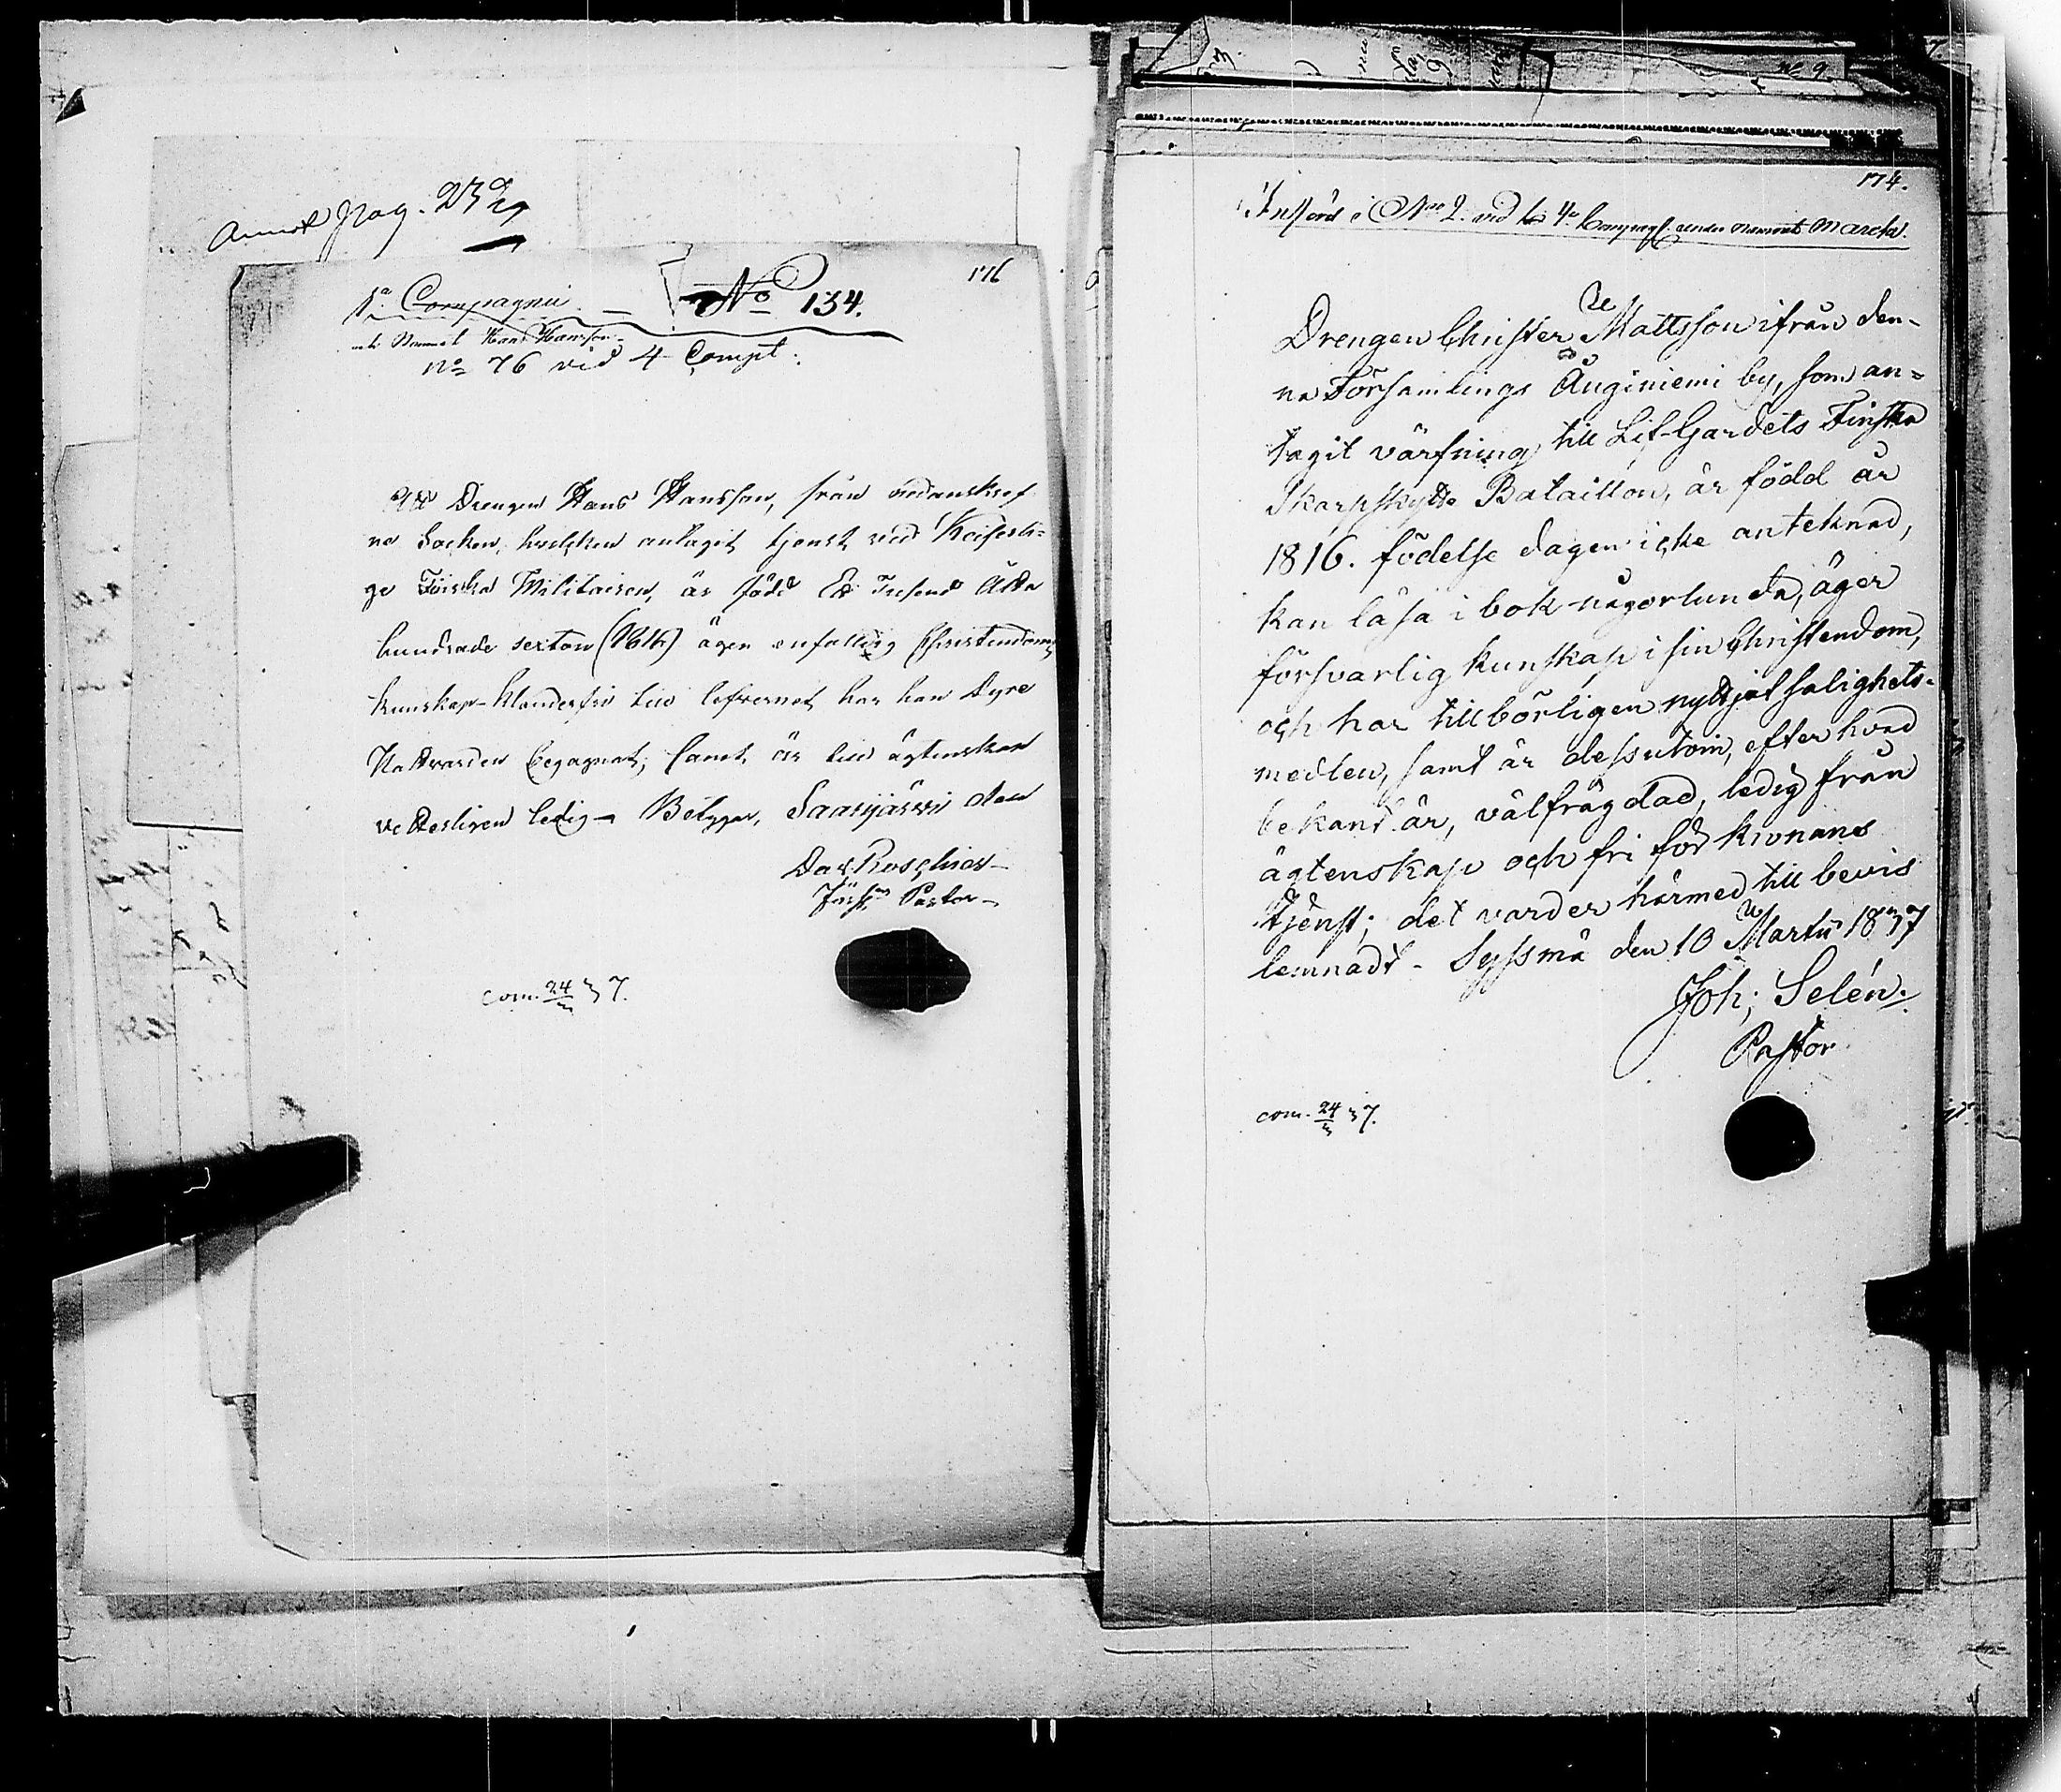 Annot pag. 232
176
1a Compagnie — No 134.
Hans Hansson
no 76 vid 4 Compt:
Att Drengen Hans Hansson, från nedanskref
ne Socken, hvilcken antagit tjenst vid Keiserli-
ge Finska Militairen, är född Et Tusend Åtta
hundrade sexton (1816) äger enfaldig Christendoms
kunskap - klanderfri till lefvernet har han Dyre
Nattvarden begagnat, samt är till ägtenskap
vetterligen ledig — Betygar, Saarijärvi den
Dav. Roschier —
Förs. Pastor —
com. 24/3 37.
No 9.
174.
Införd i No 2. vid 4e Compagt. under namnet March.
Drengen Christer Mattsson ifrån den-
na Församlings Auginiemi by, som an-
tagit värfning till Lif-Gardets Finska
Skarpskytte Bataillon, är född år
1816. födelse dagen icke anteknad,
kan läsa i bok någorlunda, äger
försvarlig kunskap i sin Christendom,
och har tillbörligen nyttjat salighets-
medlen, samt är dessutom, efter hvad
bekant är, välfrägdad, ledig från
ägtenskap och fri för kronans
tjenst; det varder härmed till bevis
lemnadt - Syssmä den 10 Martii 1837
Joh; Selén.
Pastor
com. 24/3 37.